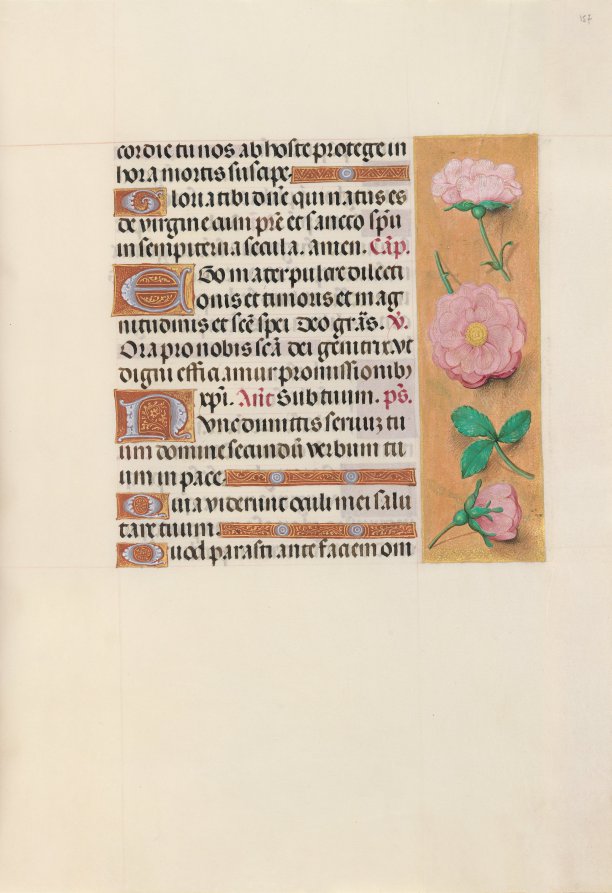 157
cordie tu nos ab hoste protege in
hora mortis suscipe.
Gloria tibi dñe qui natus es
de virgine cum p̃re et sancto sp̃u
in sempiterna secula. amen. Cap̃.
EGo mater pulcre dilecti
onis et timoris et mag
nitudinis et sc̃e spei Deo gr̃as. V̄.
Ora pro nobis sc̃a dei genitrix vt
digni efficiamur promissionibꝰ
xp̃i. Añt Sub tuum. ps̃.
NVnc dimittis seruuz tu
um domine secundũ verbum tu
um in pace.
Quia viderunt oculi mei salu
tare tuum.
Quod parasti ante faciem om